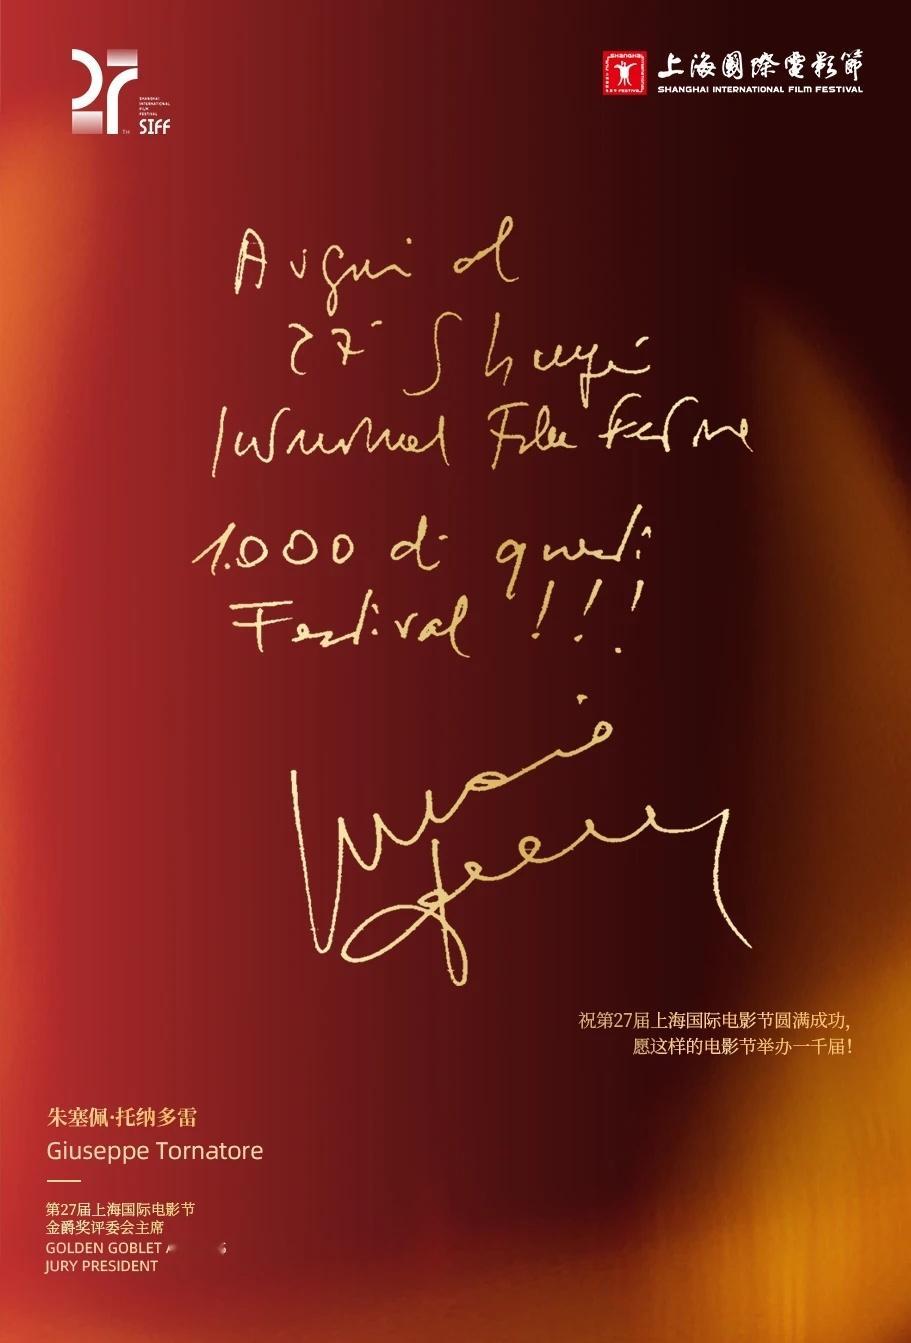 27
TH
SHANGHAI
INTERNATIONAL
FILM
FESTIVAL
SIFF
上海國際電影節
SHANGHAI INTERNATIONAL FILM FESTIVAL
Auguri al
27°
Film
1.000 di questi
Festival !!!
祝第27届上海国际电影节圆满成功，
愿这样的电影节举办一千届！
朱塞佩·托纳多雷
Giuseppe Tornatore
第27届上海国际电影节
金爵奖评委会主席
GOLDEN GOBLET
JURY PRESIDENT